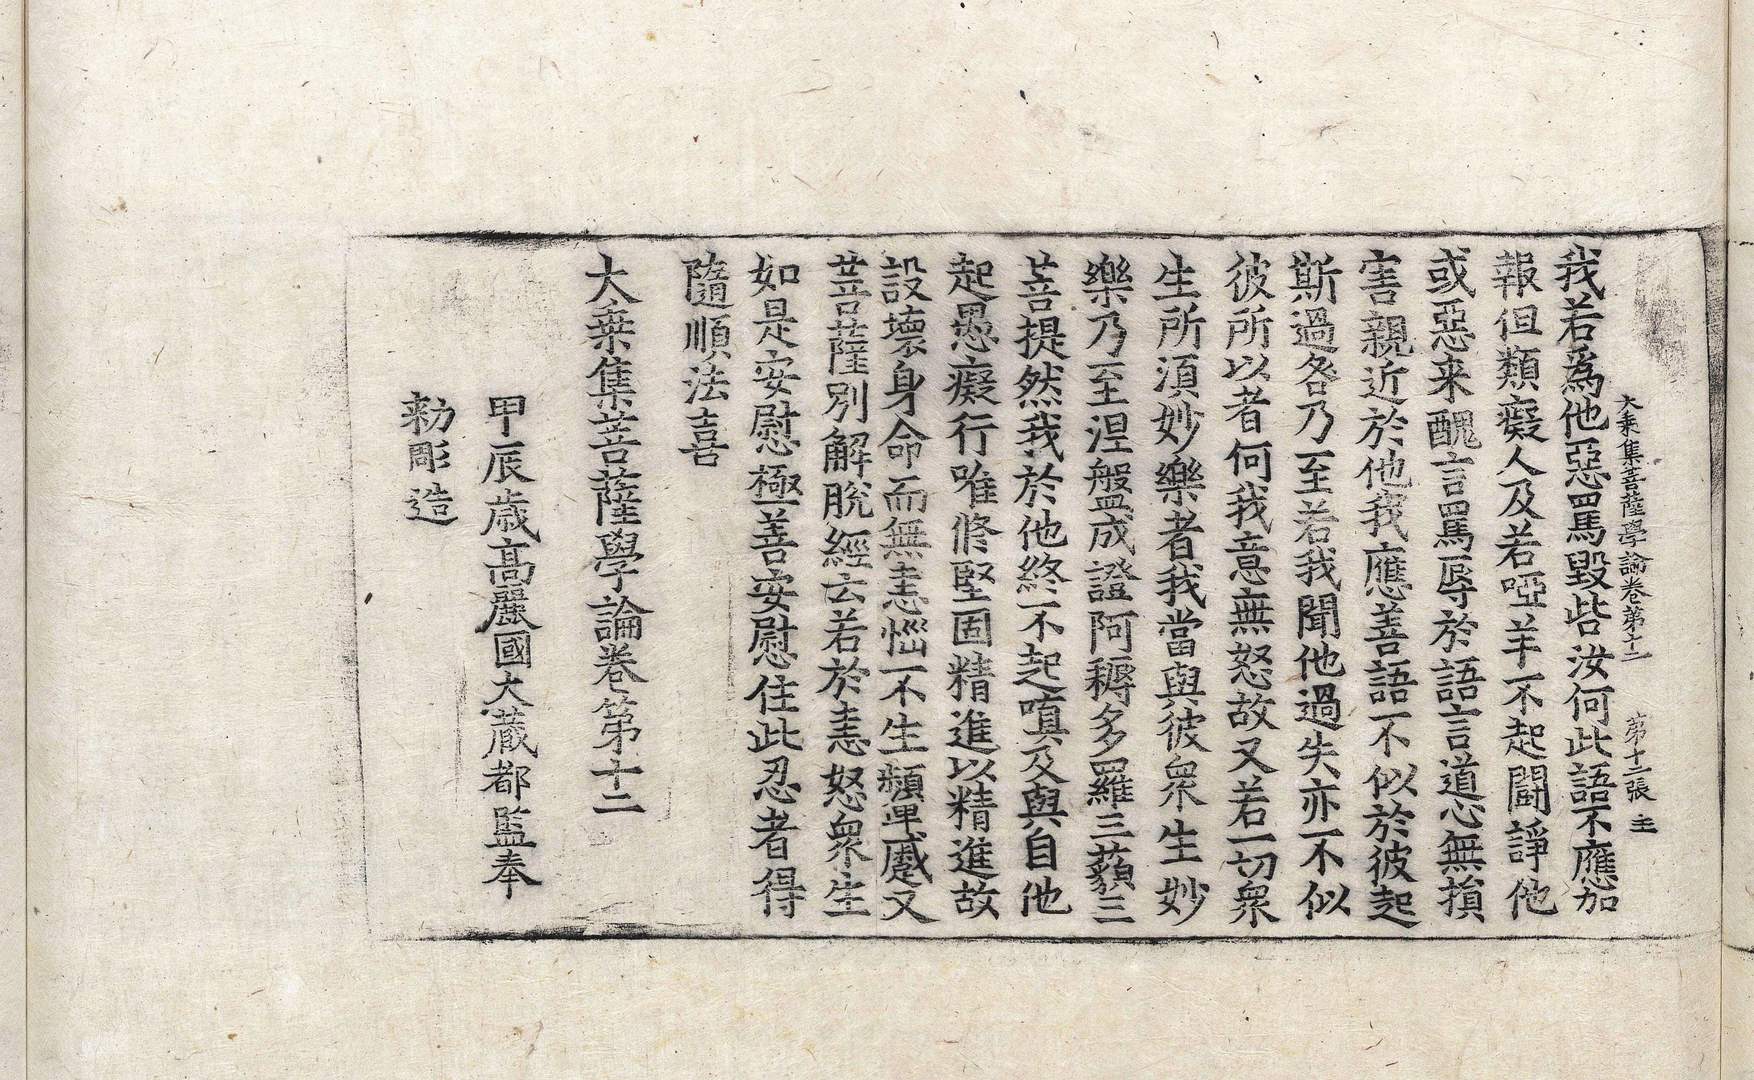 大乗集菩薩學論卷第十二 第十二張 主
我若爲他惡罵毀呰汝何此語不應加
報但類癡人及若啞羊不起鬪諍他
或惡来醜言罵辱於語言道心無損
害親近於他我應善語不似於彼起
斯過咎乃至若我聞他過失亦不似
彼所以者何我意無怒故又若一切衆
生所湏妙樂者我當與彼衆生妙
樂乃至涅盤成證阿耨多羅三藐三
菩提然我於他終不起嗔及與自他
起愚癡行唯修堅固精進以精進故
設壞身命而無恚惱不生顰蹙又
菩薩別解脫經云若於恚怒衆生
如是安慰極善安慰住此忍者得
隨順法喜
大乗集菩薩學論卷第十二
甲辰歳高麗國大藏都監奉
勑彫造